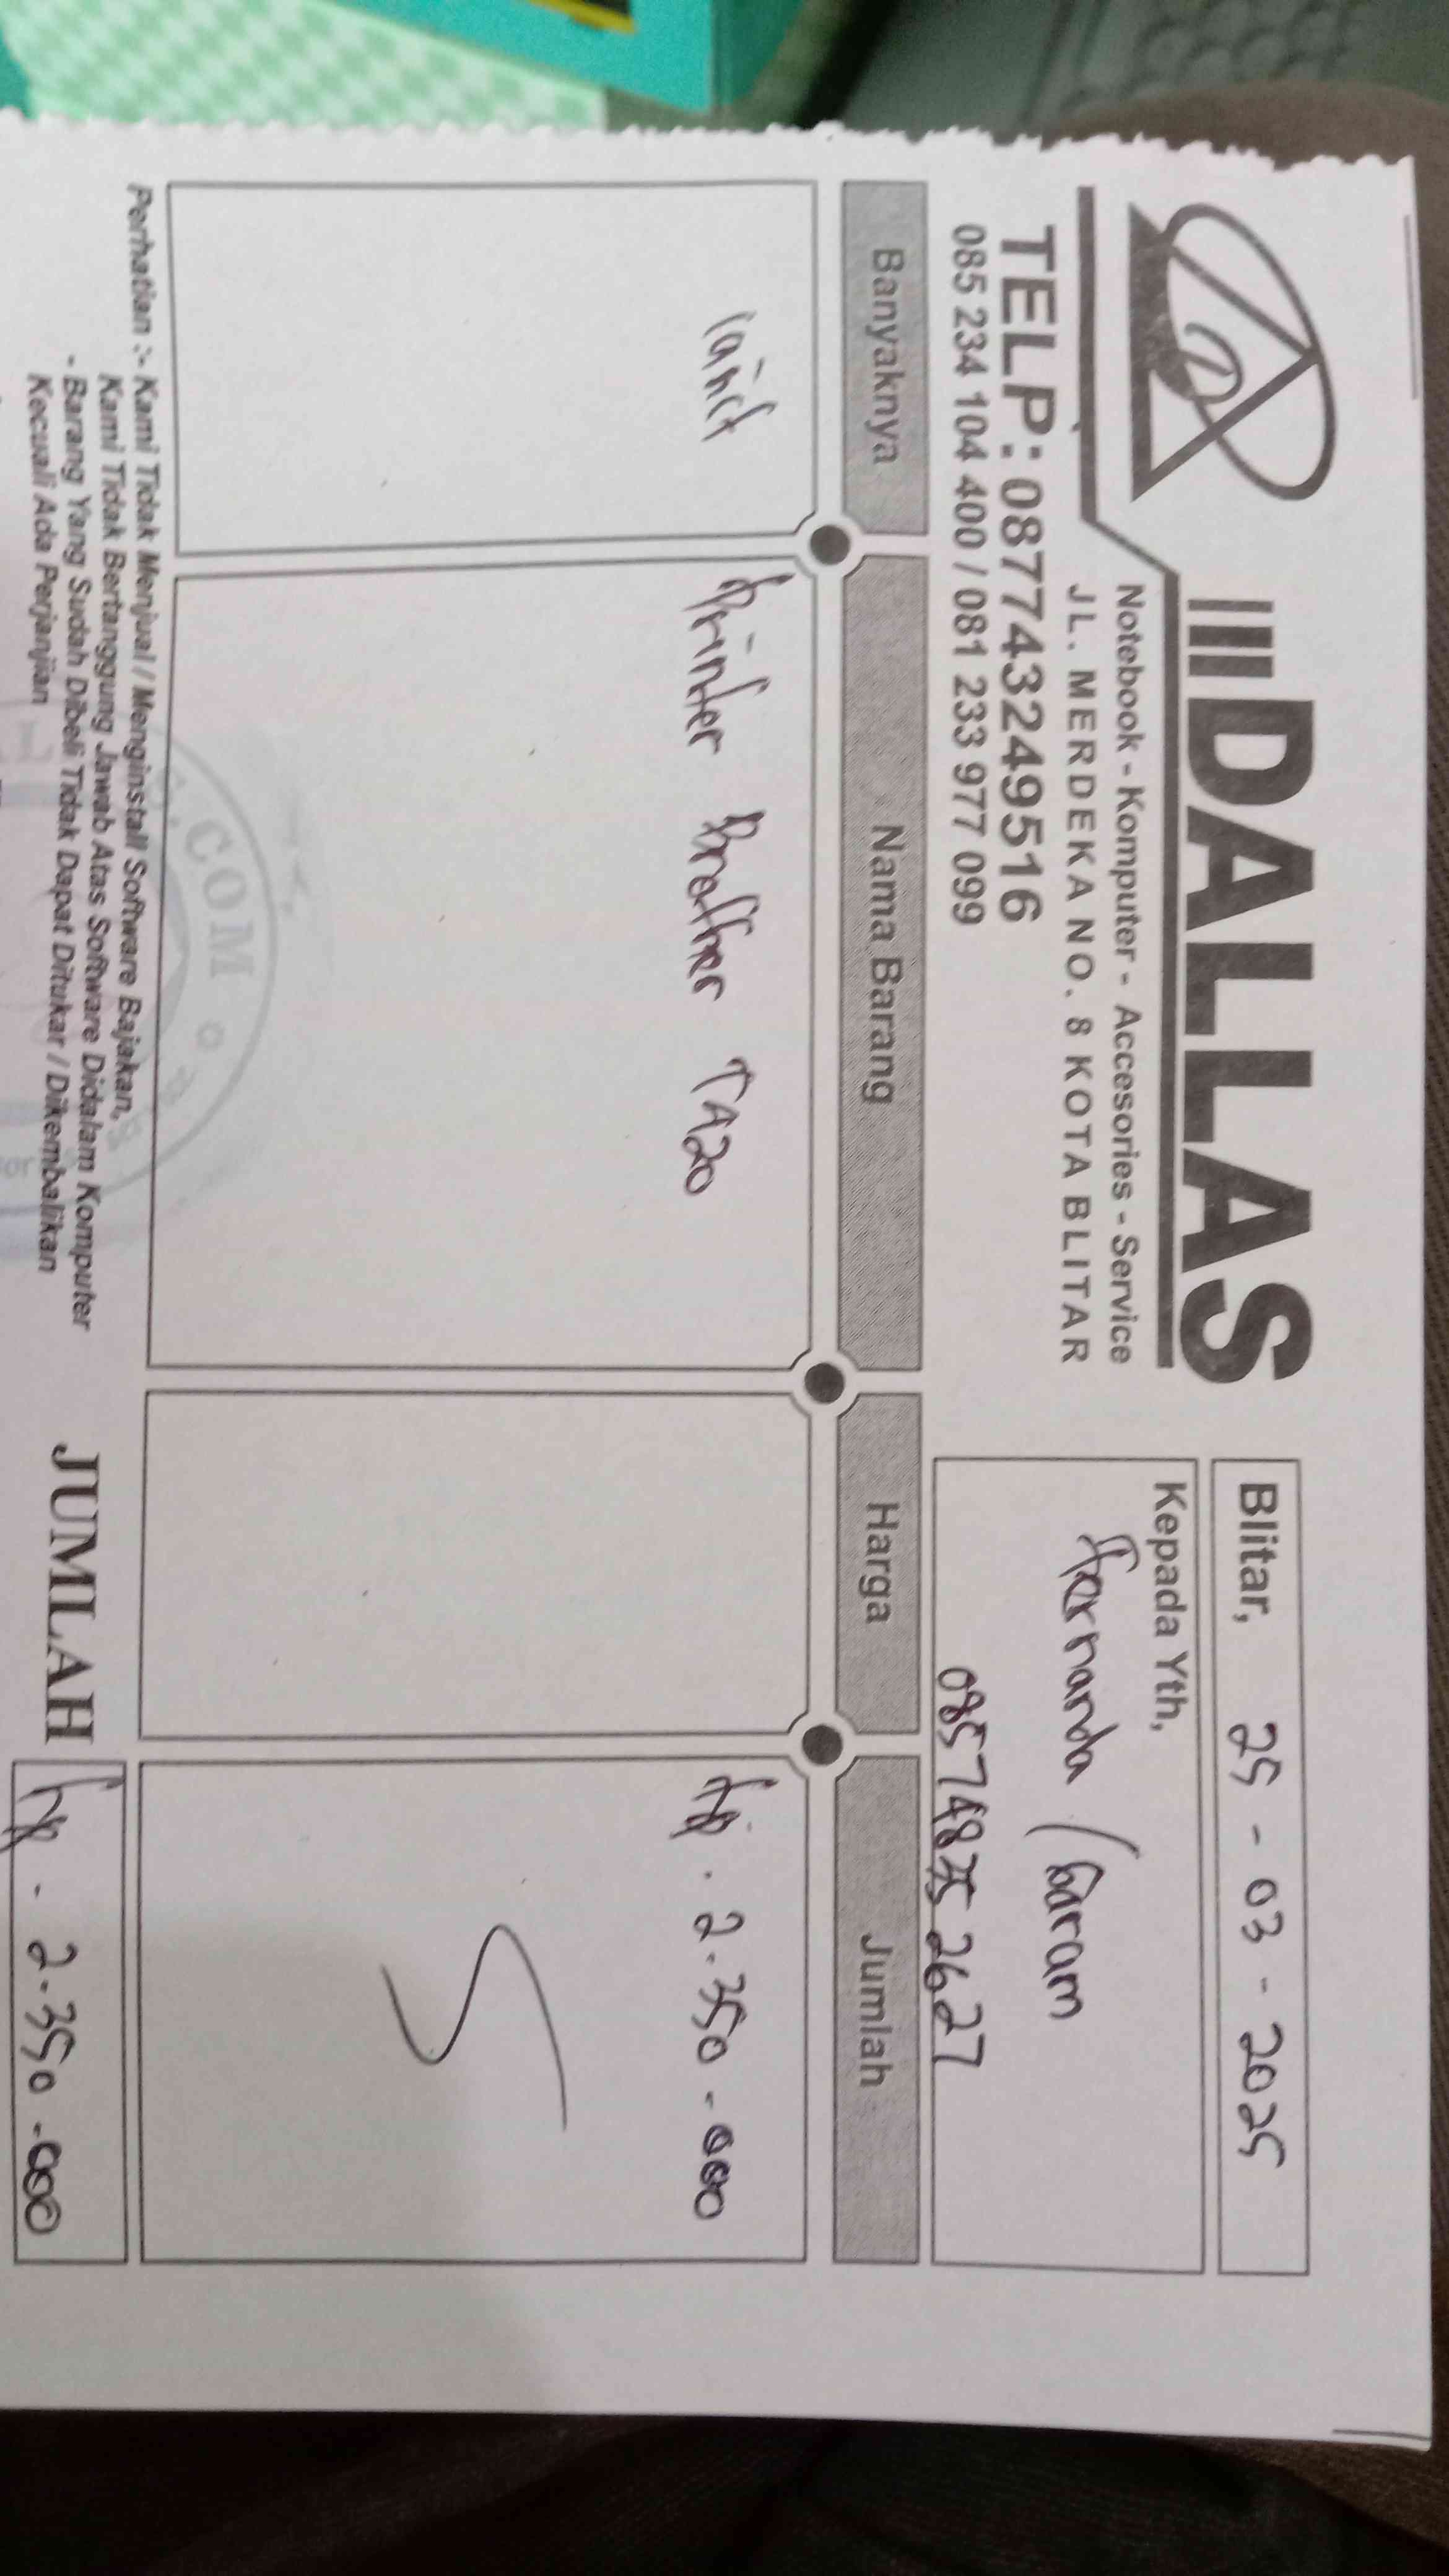 DALLAS
Notebook - Komputer - Accesories - Service
JL. MERDEKA NO. 8 KOTA BLITAR
TELP: 087743249516
085 234 104 400 / 081 233 977 099
Blitar, 25 - 03 - 2025
Kepada Yth,
Fernanda / Garam
Banyaknya Nama Barang Harga Jumlah
1 Unit Printer Brother TA20 Rp. 2.350-000
COM
Perhatian :- Kami Tidak Menjual / Menginstall Software Bajakan,
Kami Tidak Bertanggung Jawab Atas Software Didalam Komputer
- Barang Yang Sudah Dibeli Tidak Dapat Ditukar / Dikembalikan
Kecuali Ada Perjanjian
JUMLAH Rp - 2.350-000